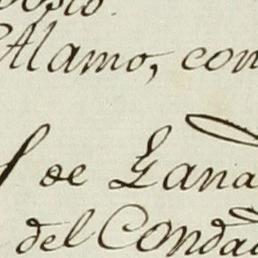 Alamo, con
de Gana
del Conda